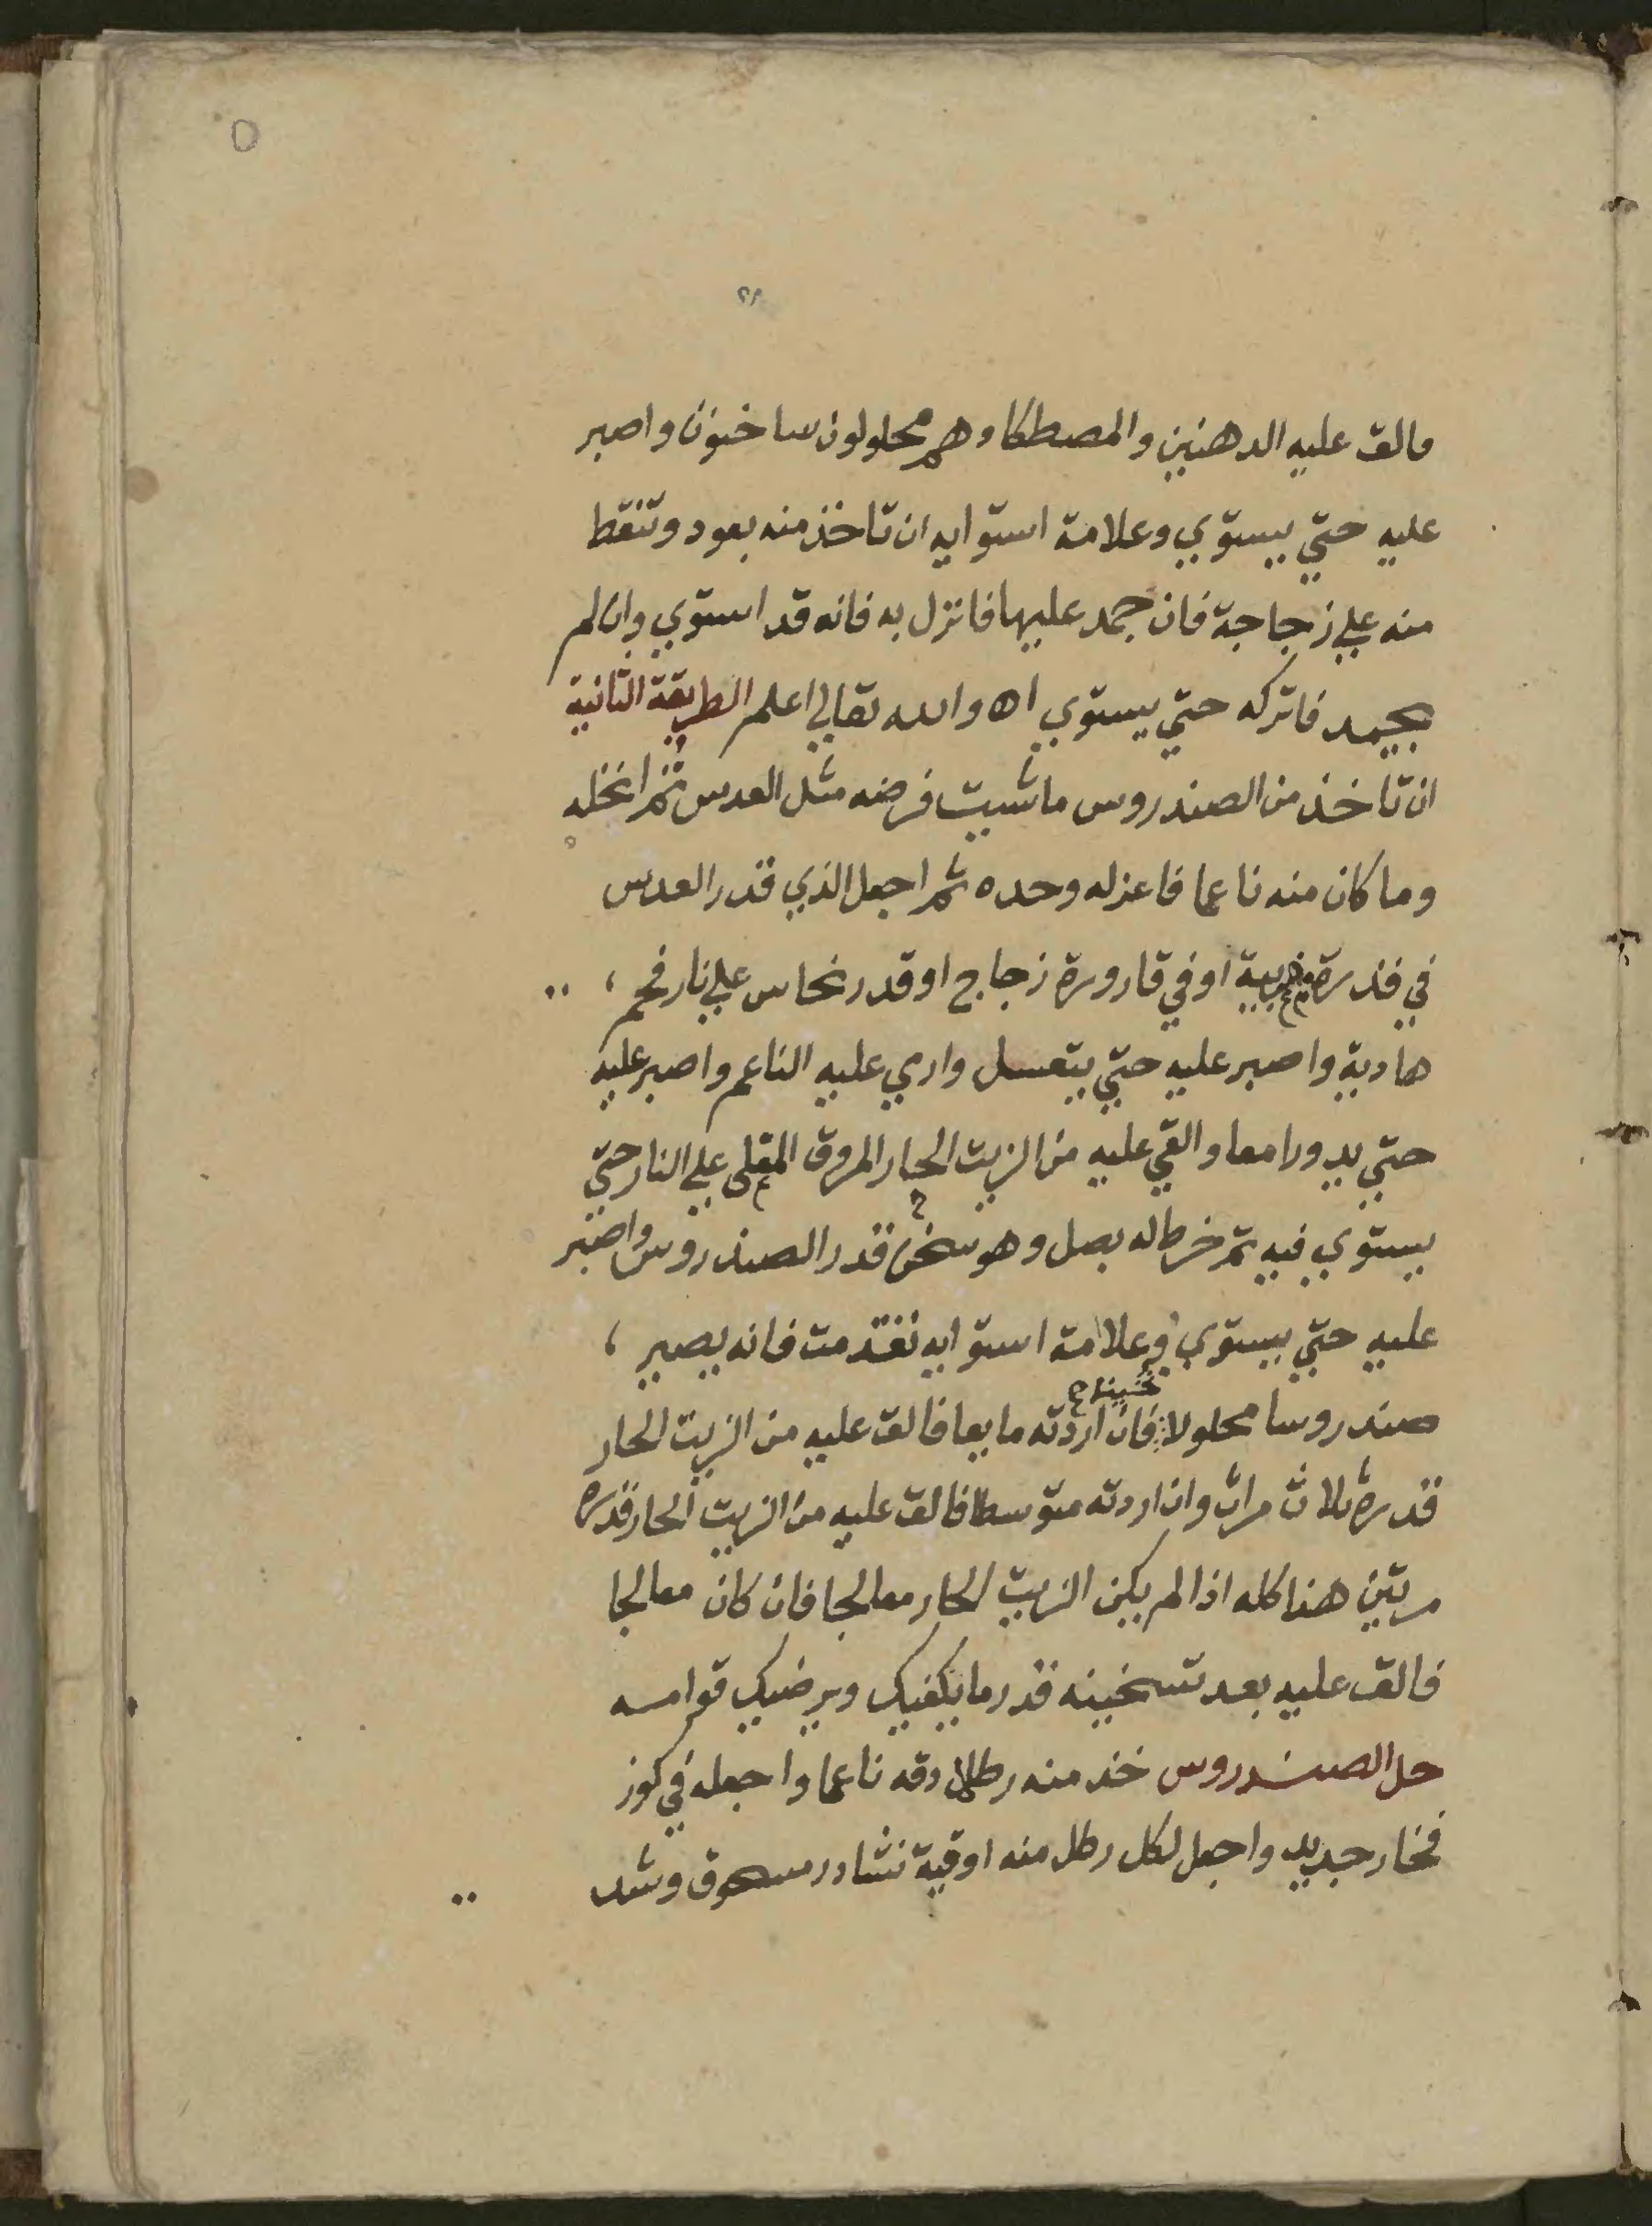 والق عليه الدهنين والمصطكا وهم محلولون ساخنون واصبر
عليه حتي يستوي وعلامة استوايه ان تاخذ منه بعود وتنقط
منه علي زجاجة فان جمد عليها فانزل به فانه قد استوي وان لم
يجمد فاتركه حتي يستوي اه والله تعالي اعلم الطريقة الثانية
ان تاخذ من الصندروس ما شيت فرضه مثل العدس ثم انخله
وما كان منه ناعما فاعزله وحده ثم اجعل الذي قدر العدس
في قدرة او في قارورة زجاج او قدر نحاس علي نار فحم ،
هادية واصبر عليه حتي يتعسل وارمي عليه الناعم واصبر عليه
حتي يدورا معا والقي عليه من الزيت الحار المروق المغلى علي النار حتي
يستوي فيه ثم خرطاله بصل وهو سخن قدر الصندروس واصبر
عليه حتي يستوي وعلامة استوايه تقدمت فانه يصير ،
صندروسا محلولا ثخينا فان اردته مايعا فالق عليه من الزيت الحار
قدره ثلاث مرات وان اردته متوسطا فالق عليه من الزيت الحار قدره
مرتين هذا كله اذا لم يكن الزيت الحار معالجا فان كان معالجا
فالق عليه بعد تسخينه قدر ما يكفيك ويرضيك قوامه
حل الصندروس خذ منه رطلا دقه ناعما واجعله في كوز
فخار جديد واجعل لكل رطل منه اوقية نشادر مسحوق وشد